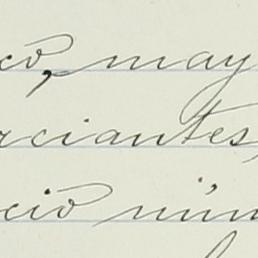 co, may
rciantes,
ció núm